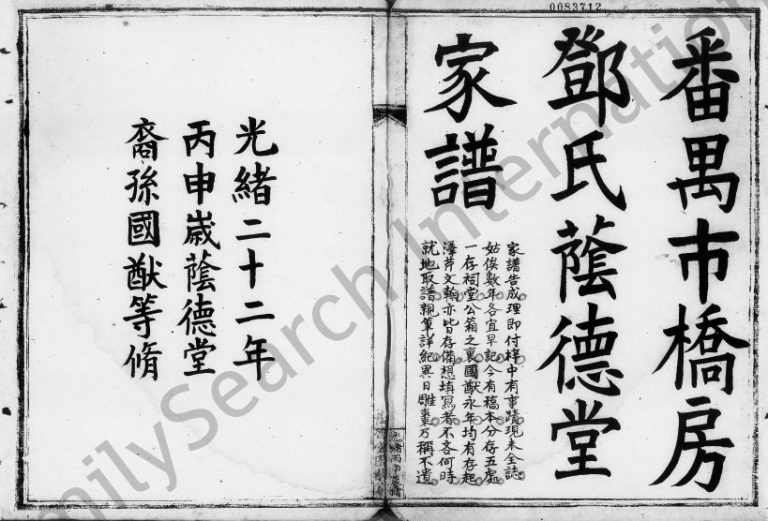 0083712
番禺市橋房
鄧氏蔭德堂
家譜
家譜告成理即付梓中有事蹟現未全誌
姑俟數年各宜早記今有稿本分存五處
一存祠堂公箱之裏國猷永年均有存起
澤芹文翰亦皆存備想填寫者不吝何時
就地取譜親筆詳紀異日雕棗乃稱不遺
光緒二十二年
丙申歲蔭德堂
裔孫國猷等脩
FamilySearch International